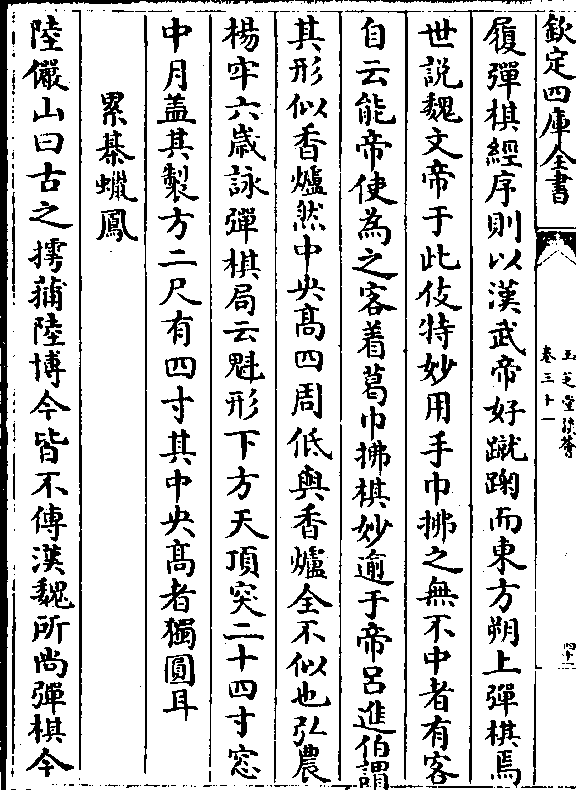 欽定四庫全書
玉芝堂談薈
卷三十一
四十一
履彈棋經序則以漢武帝好蹴踘而東方朔上彈棋焉
世説魏文帝于此伎特妙用手巾拂之無不中者有客
自云能帝使為之客着葛巾拂棋妙逾于帝呂進伯謂
其形似香爐然中央高四周低與香爐全不似也弘農
楊牢六歲詠彈棋局云魁形下方天頂突二十四寸窓
中月盖其製方二尺有四寸其中央髙者獨圓耳
累棊蠟鳳
陸儼山曰古之摴蒱陸博今皆不傳漢魏所尚彈棋今